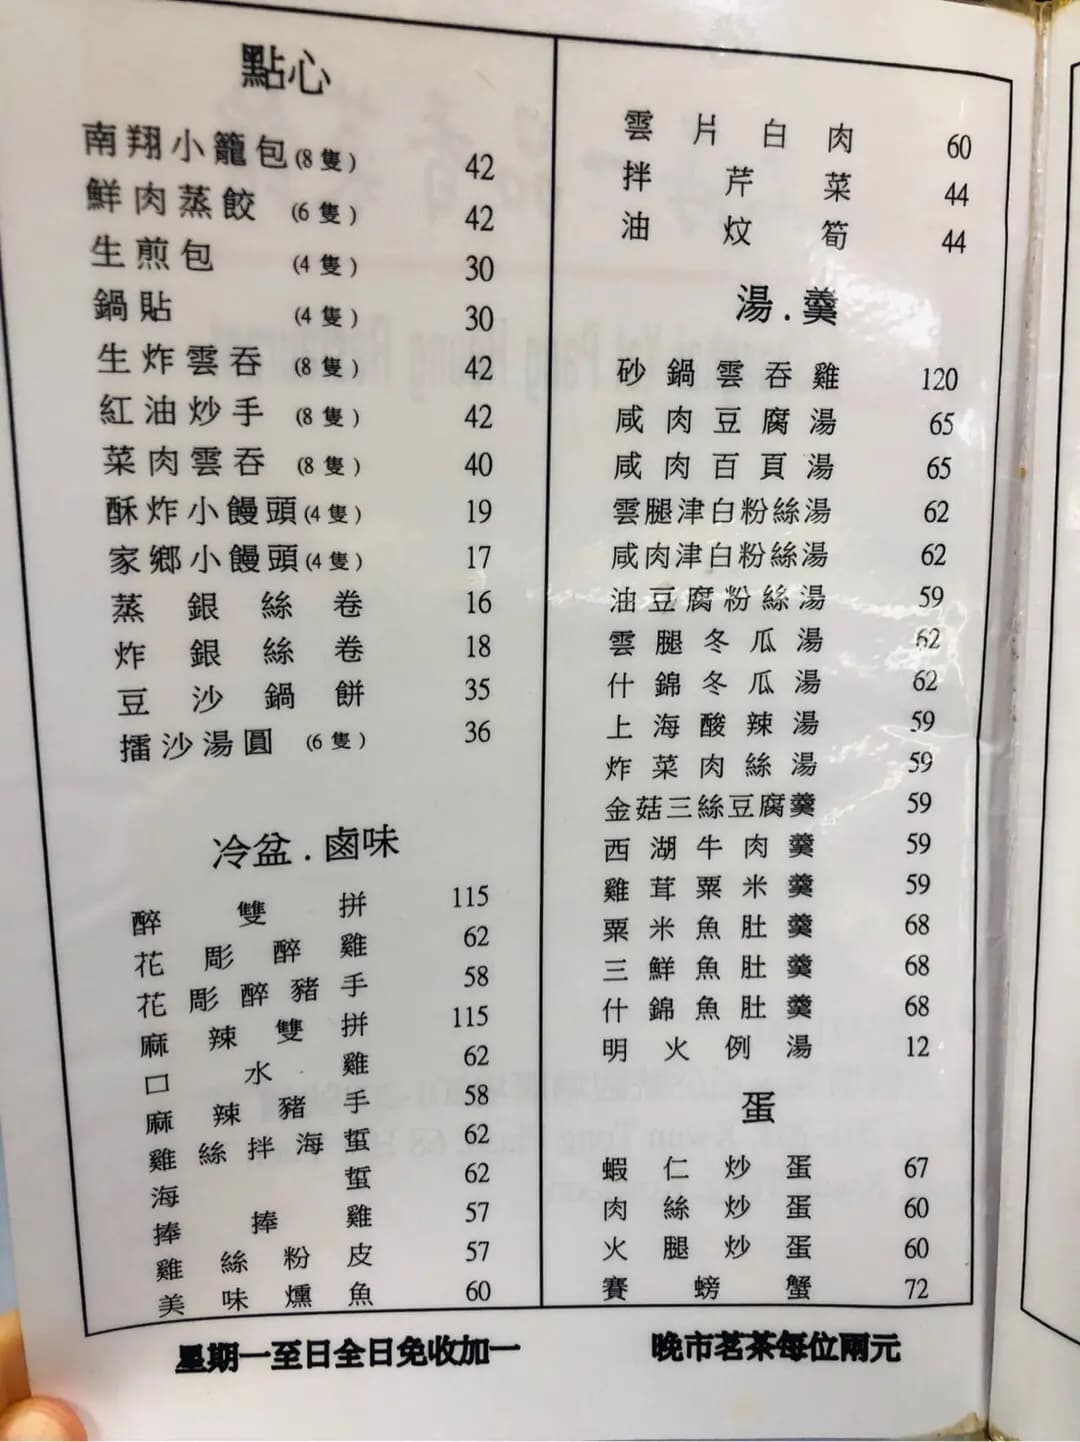 點心
南翔小籠包(8隻) 42
鮮肉蒸餃 (6隻) 42
生煎包 (4隻) 30
鍋貼 (4隻) 30
生炸雲吞 (8隻) 42
紅油炒手 (8隻) 42
菜肉雲吞 (8隻) 40
酥炸小饅頭(4隻) 19
家鄉小饅頭(4隻) 17
蒸銀絲卷 16
炸銀絲卷 18
豆沙鍋餅 35
擂沙湯圓 (6隻) 36
冷盆.鹵味
醉雙拼 115
花彫醉雞 62
花彫醉豬手 58
麻辣雙拼 115
口水雞 62
麻辣豬手 58
雞絲拌海蜇 62
海蜇 62
捧捧雞 57
雞絲粉皮 57
美味燻魚 60
雲片白肉 60
拌芹菜 44
油炆筍 44
湯.羹
砂鍋雲吞雞 120
咸肉豆腐湯 65
咸肉百頁湯 65
雲腿津白粉絲湯 62
咸肉津白粉絲湯 62
油豆腐粉絲湯 59
雲腿冬瓜湯 62
什錦冬瓜湯 62
上海酸辣湯 59
炸菜肉絲湯 59
金菇三絲豆腐羹 59
西湖牛肉羹 59
雞茸粟米羹 59
粟米魚肚羹 68
三鮮魚肚羹 68
什錦魚肚羹 68
明火例湯 12
蛋
蝦仁炒蛋 67
肉絲炒蛋 60
火腿炒蛋 60
賽螃蟹 72
星期一至日全日免收加一
晚市茗茶每位兩元